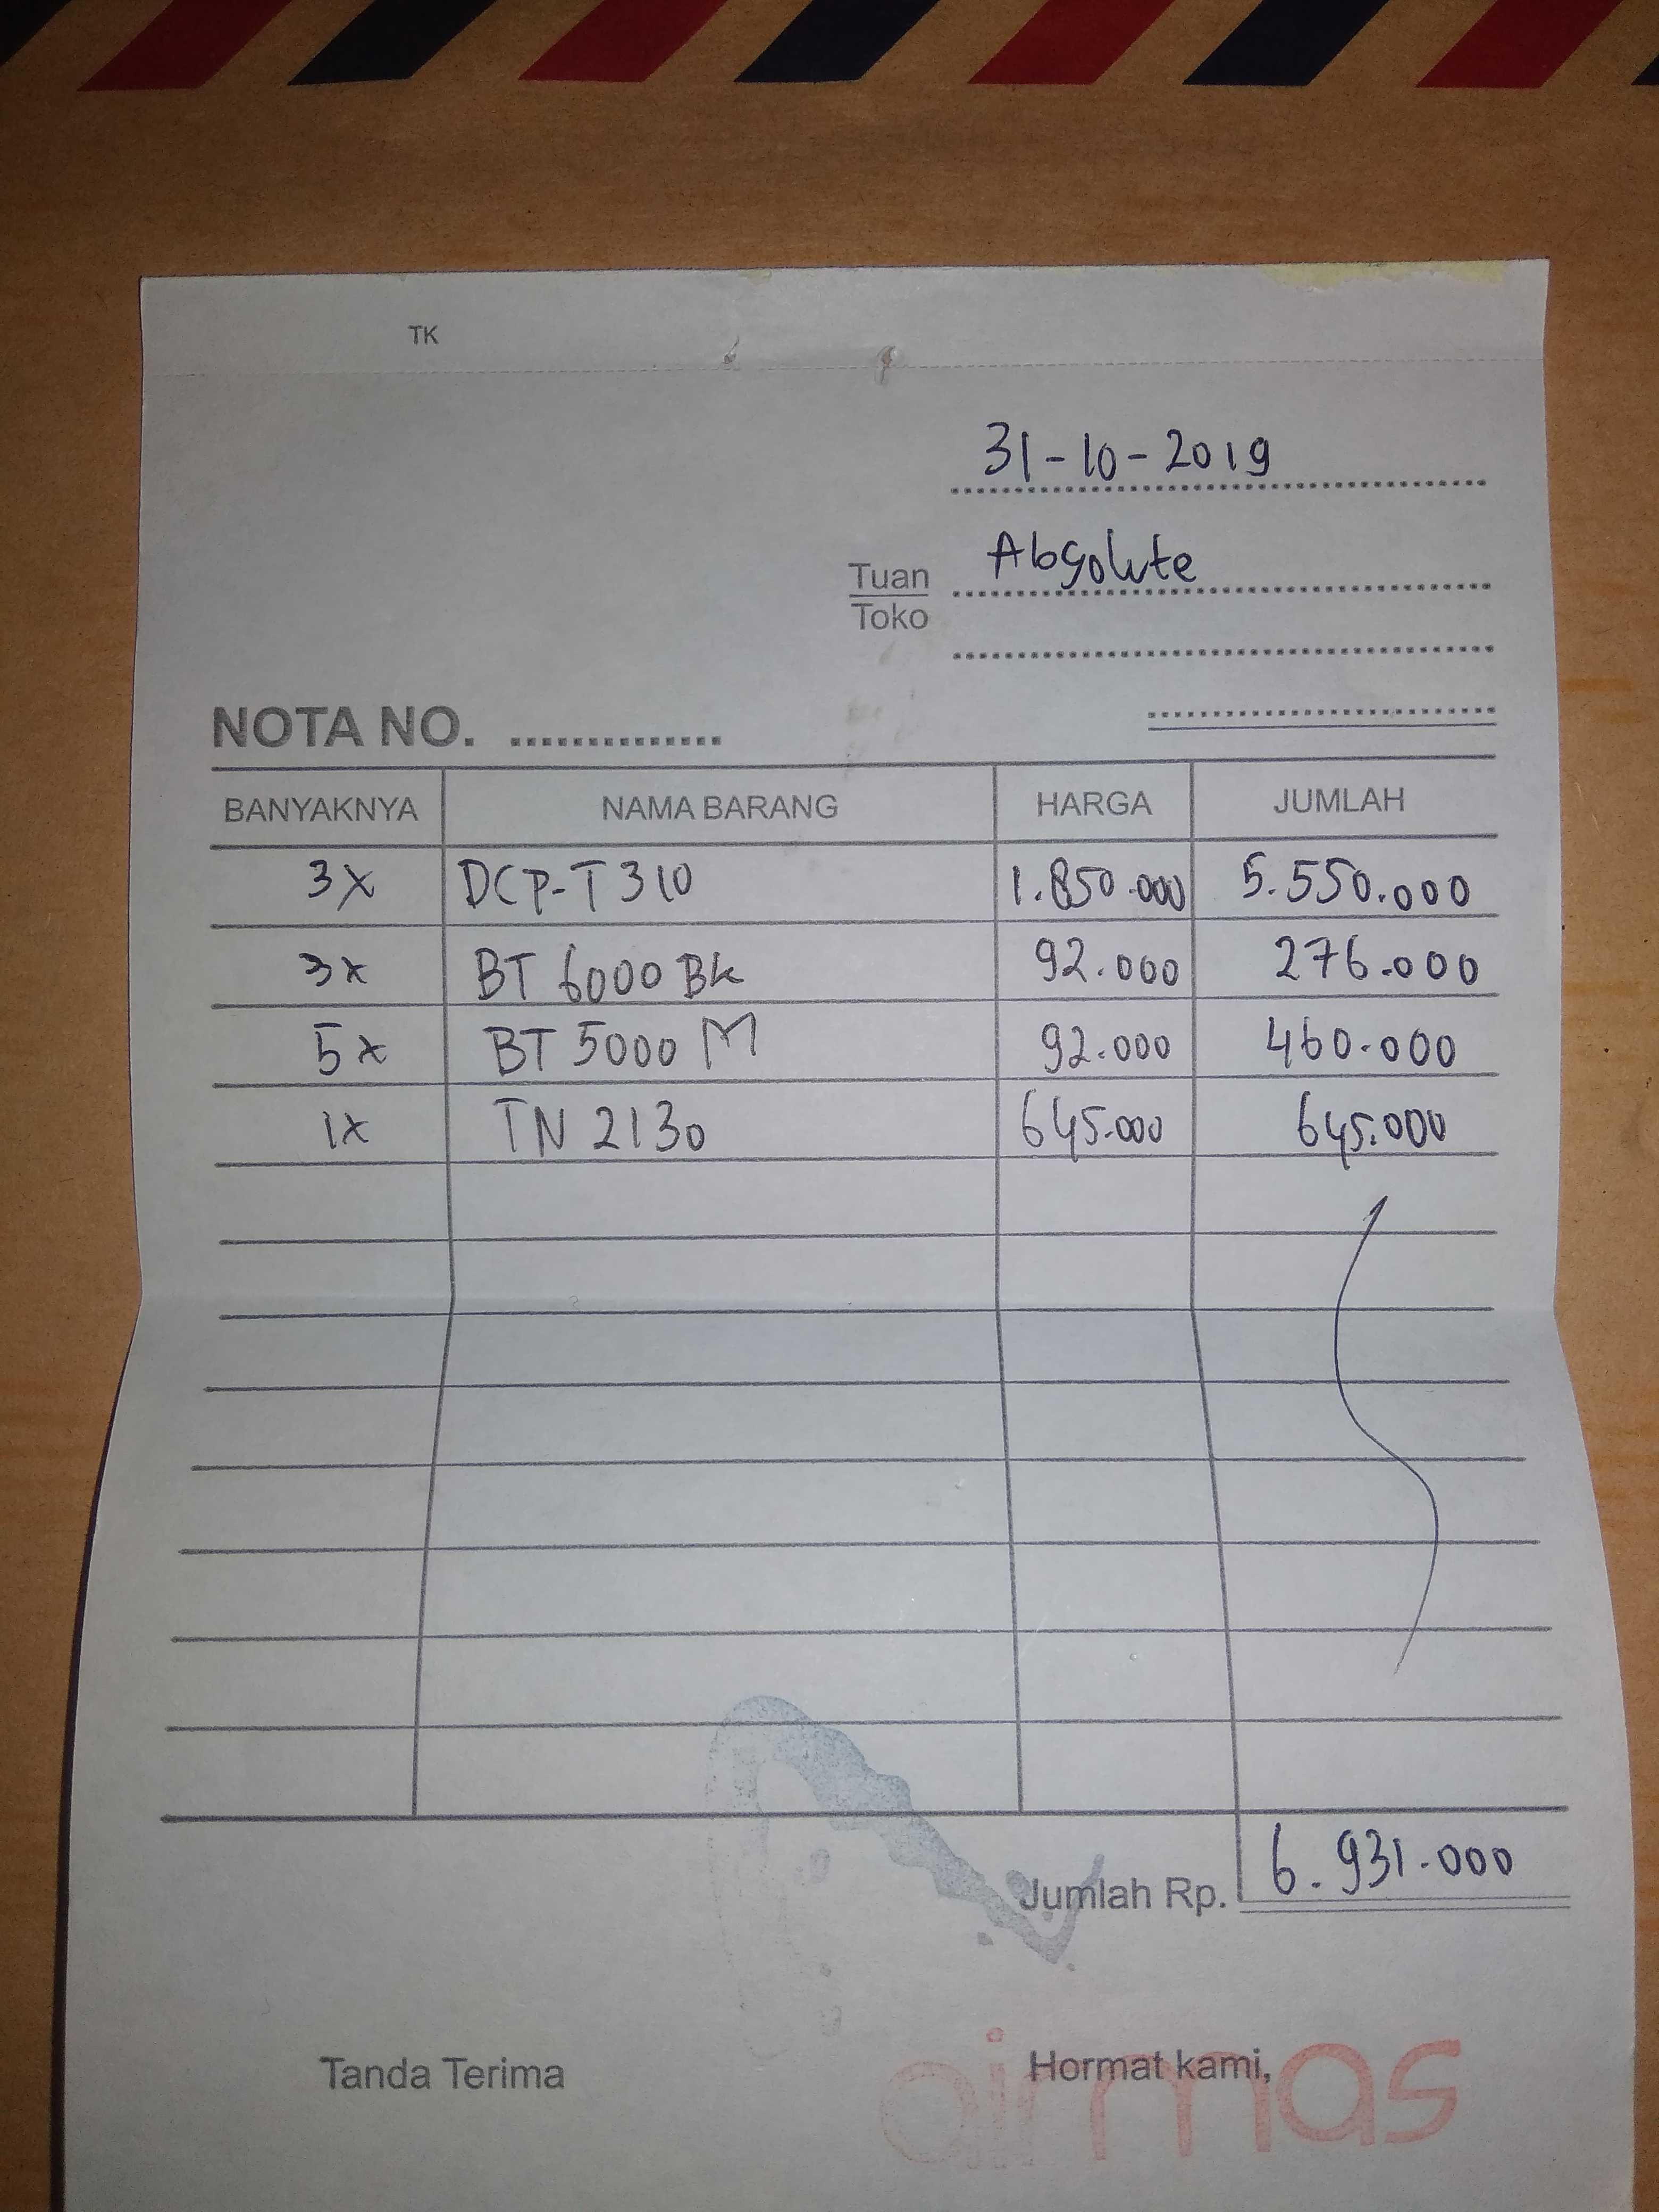 TK
31-10-2019
Tuan Absolute
Toko
NOTA NO. ..............
BANYAKNYA NAMA BARANG HARGA JUMLAH
3x DCP-T310 1.850.000 5.550.000
3x BT 6000 Bk 92.000 276.000
5x BT 5000 M 92.000 460.000
1x TN 2130 645.000 645.000
Jumlah Rp. 6.931.000
Tanda Terima Hormat kami,
airmas